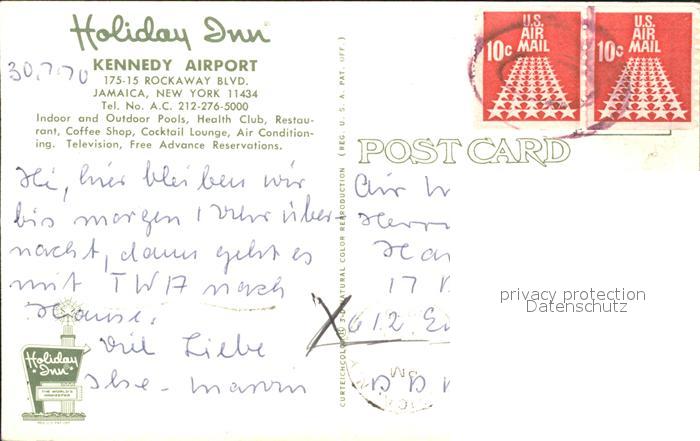 Holiday Inn
KENNEDY AIRPORT
30.7.70
175-15 ROCKAWAY BLVD.
JAMAICA, NEW YORK 11434
Tel. No. A.C. 212-276-5000
Indoor and Outdoor Pools, Health Club, Restau-
rant, Coffee Shop, Cocktail Lounge, Air Condition-
ing. Television, Free Advance Reservations.
Hi, hier bleiben wir
bis morgen 1 Uhr über-
nacht, dann geht es
mit TWA nach
Hause.
Viel Liebe
Ilse - Marvin
Holiday Inn
THE WORLD'S INNKEEPER
CURTEICHCOLOR 3-D NATURAL COLOR REPRODUCTION (REG. U. S. A. PAT. OFF.)
U.S. AIR MAIL 10c
U.S. AIR MAIL 10c
POST CARD
Air
Herr
17
612
privacy protection
Datenschutz